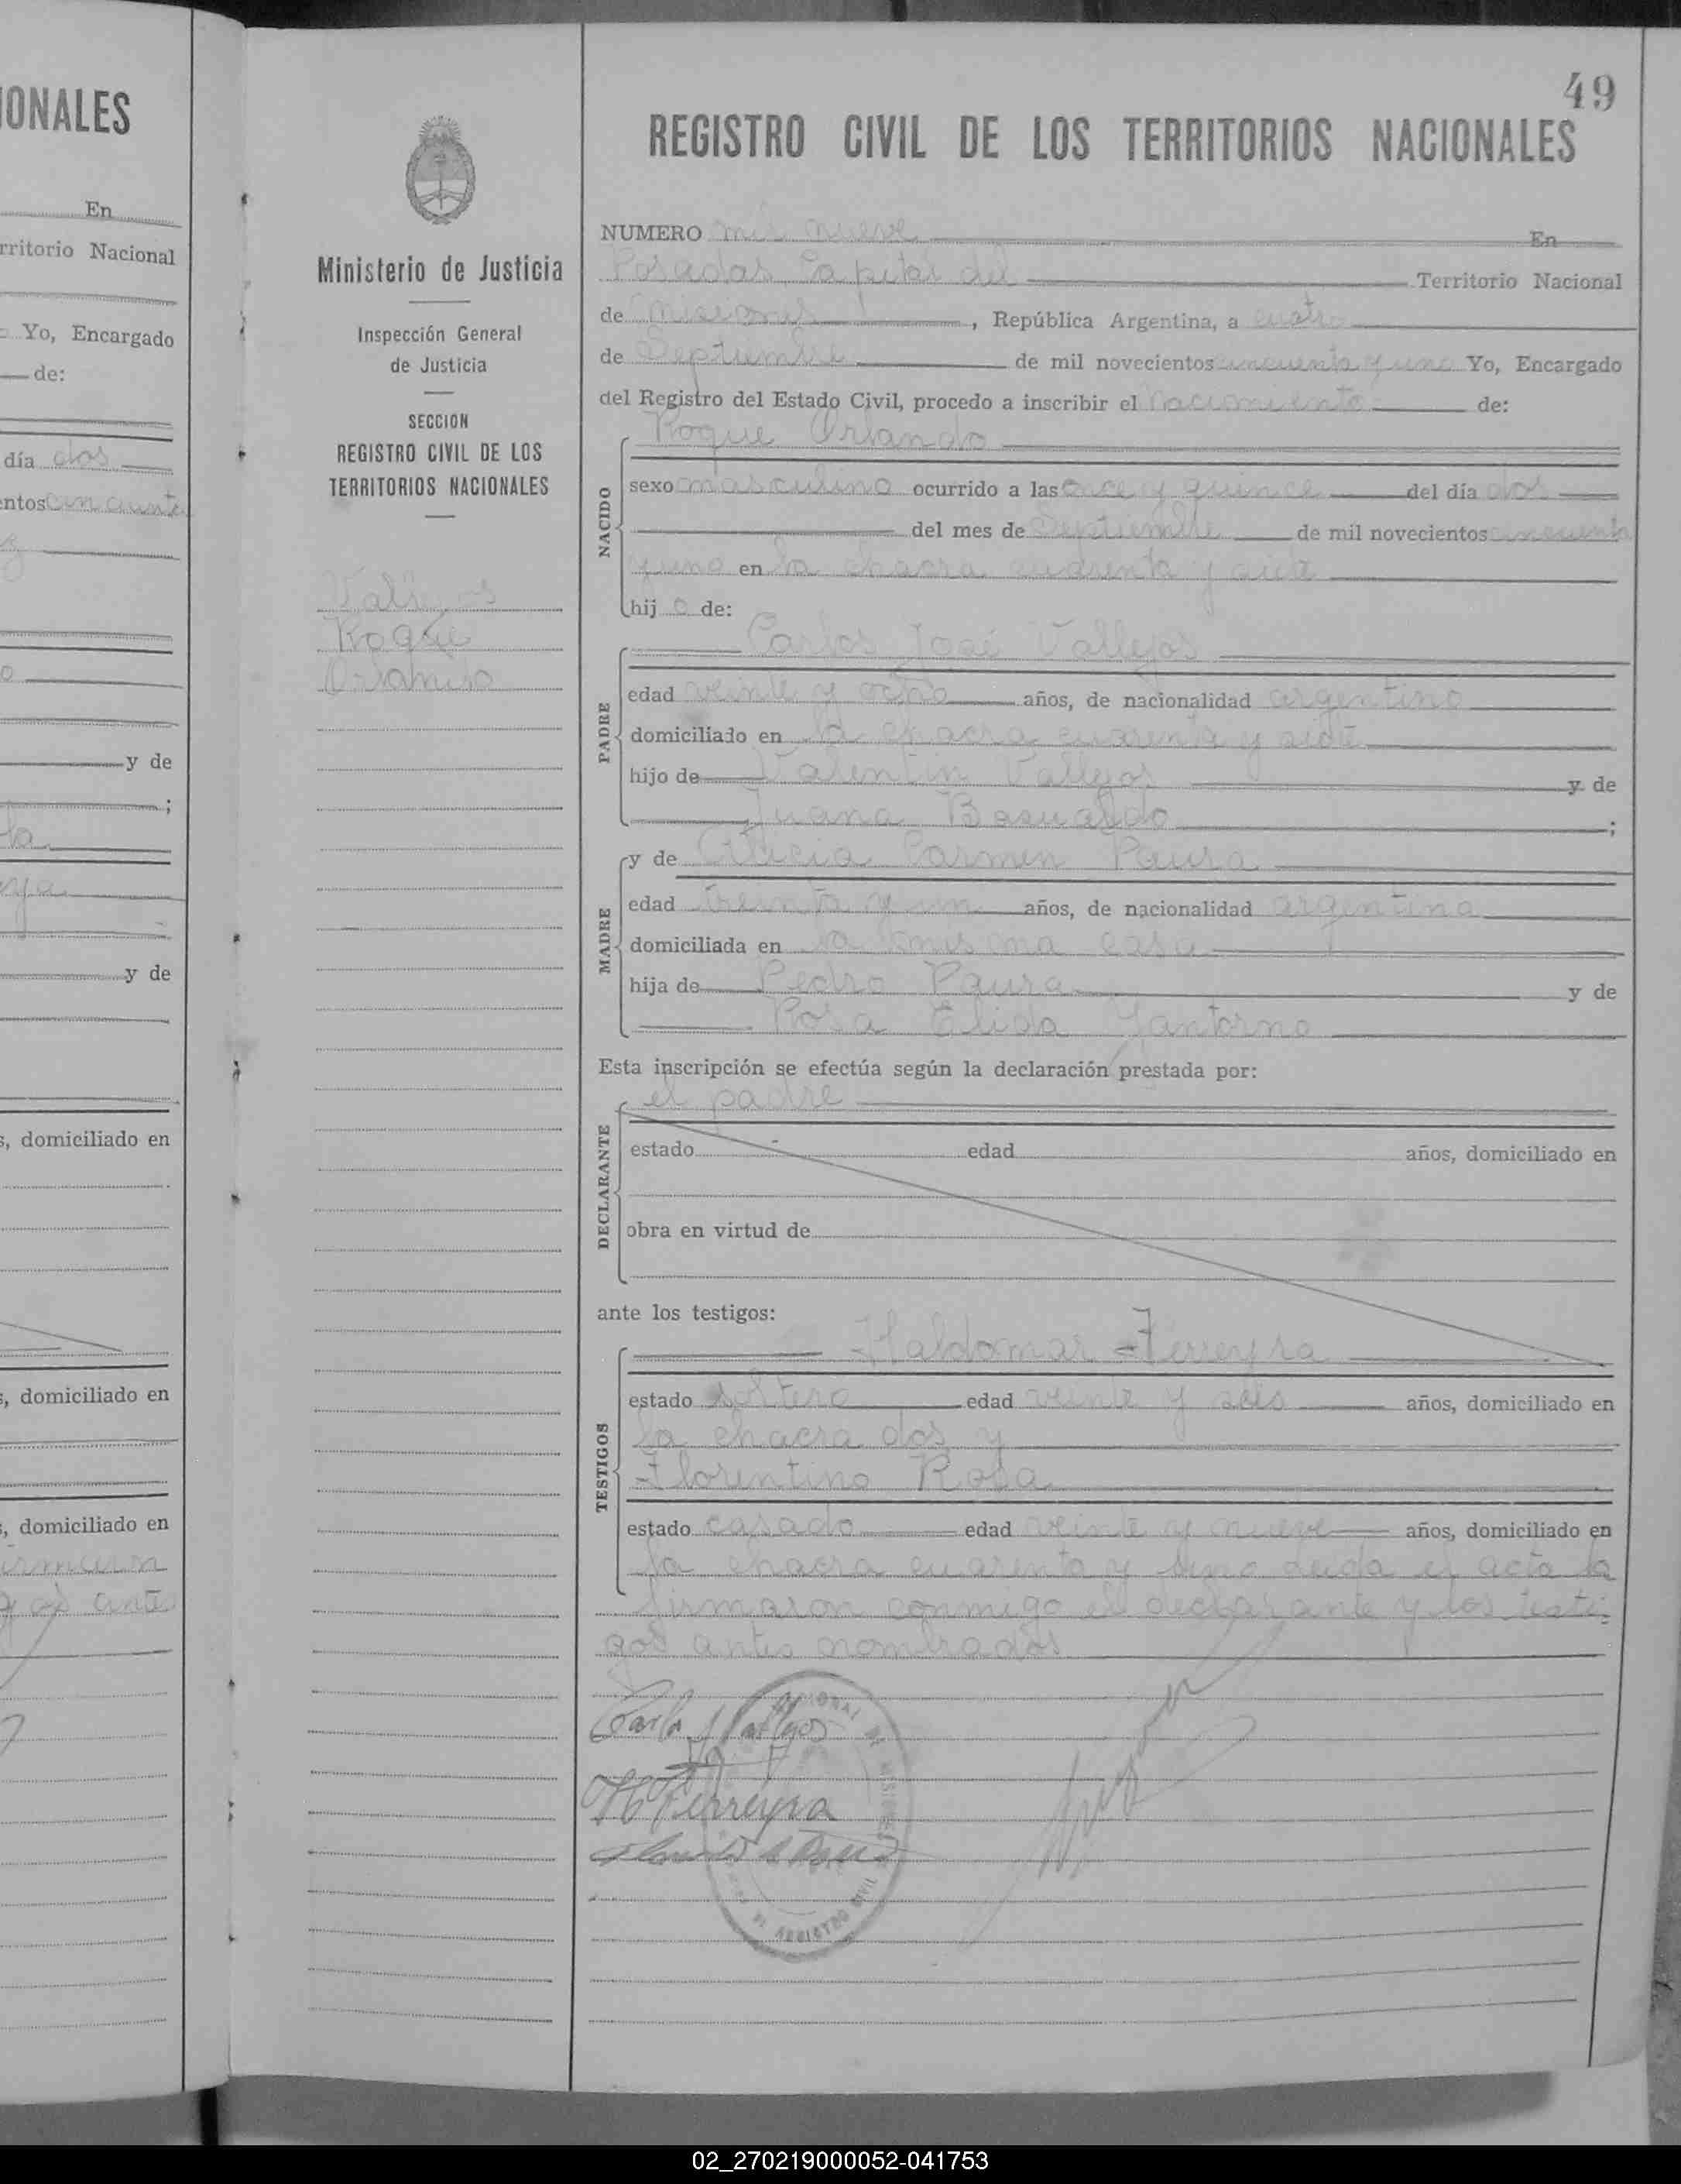 IONALES
En
rritorio Nacional
Yo, Encargado
de:
día dos
entos cincuenta
y de
;
y de
s, domiciliado en
s, domiciliado en
, domiciliado en
Ministerio de Justicia
Inspección General
de Justicia
SECCION
REGISTRO CIVIL DE LOS
TERRITORIOS NACIONALES
Vallejos
Roque
Orlando
49
REGISTRO CIVIL DE LOS TERRITORIOS NACIONALES
NUMERO mil nueve En
Posadas Capital del Territorio Nacional
de Misiones, República Argentina, a cuatro
de Septiembre de mil novecientos cincuenta y uno Yo, Encargado
del Registro del Estado Civil, procedo a inscribir el nacimiento de:
Roque Orlando
NACIDO
sexo masculino ocurrido a las once y quince del día dos
del mes de Septiembre de mil novecientos cincuenta
y uno en la chacra cuarenta y siete
hij o de:
Carlos José Vallejos
PADRE
edad veinte y ocho años, de nacionalidad argentino
domiciliado en la chacra cuarenta y siete
hijo de Valentin Vallejos y de
Juana Basualdo ;
y de Alicia Carmen Paura
MADRE
edad treinta y un años, de nacionalidad argentina
domiciliada en la misma casa
hija de Pedro Paura y de
Rosa Elida Yantorno
Esta inscripción se efectúa según la declaración prestada por:
el padre
DECLARANTE
estado edad años, domiciliado en
obra en virtud de
ante los testigos:
Haldomar Ferreyra
TESTIGOS
estado soltero edad veinte y seis años, domiciliado en
la chacra dos y
Florentino Rosa
estado casado edad veinte y nueve años, domiciliado en
la chacra cuarenta y uno leida el acta la
firmaron conmigo el declarante y los testi-
gos antes nombrados
Carlos J Vallejos
H Ferreyra
REGISTRO CIVIL
02_270219000052-041753